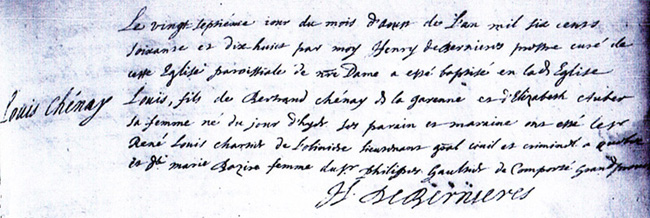 Le vingt septiéme iour du mois d'aoust de l'an mil six cents
soixante et dix huict par moy Henry de Bernieres prestre curé de
cette Eglise paroissiale de nre Dame a esté baptisé en lad Eglise
Louis Chénay
Louis, fils de Bertrand chénay de la garenne et d'Elizabeth Auber
sa femme né du jour d'hyer Ses parain et maraine ont esté le sr
René Louis chartier de Lotbinière lieutenant gnal civil et criminel a quebec
et marie Bazire femme du sr philippes Gaultier de Comporté Grand prevost
H. De Bernieres